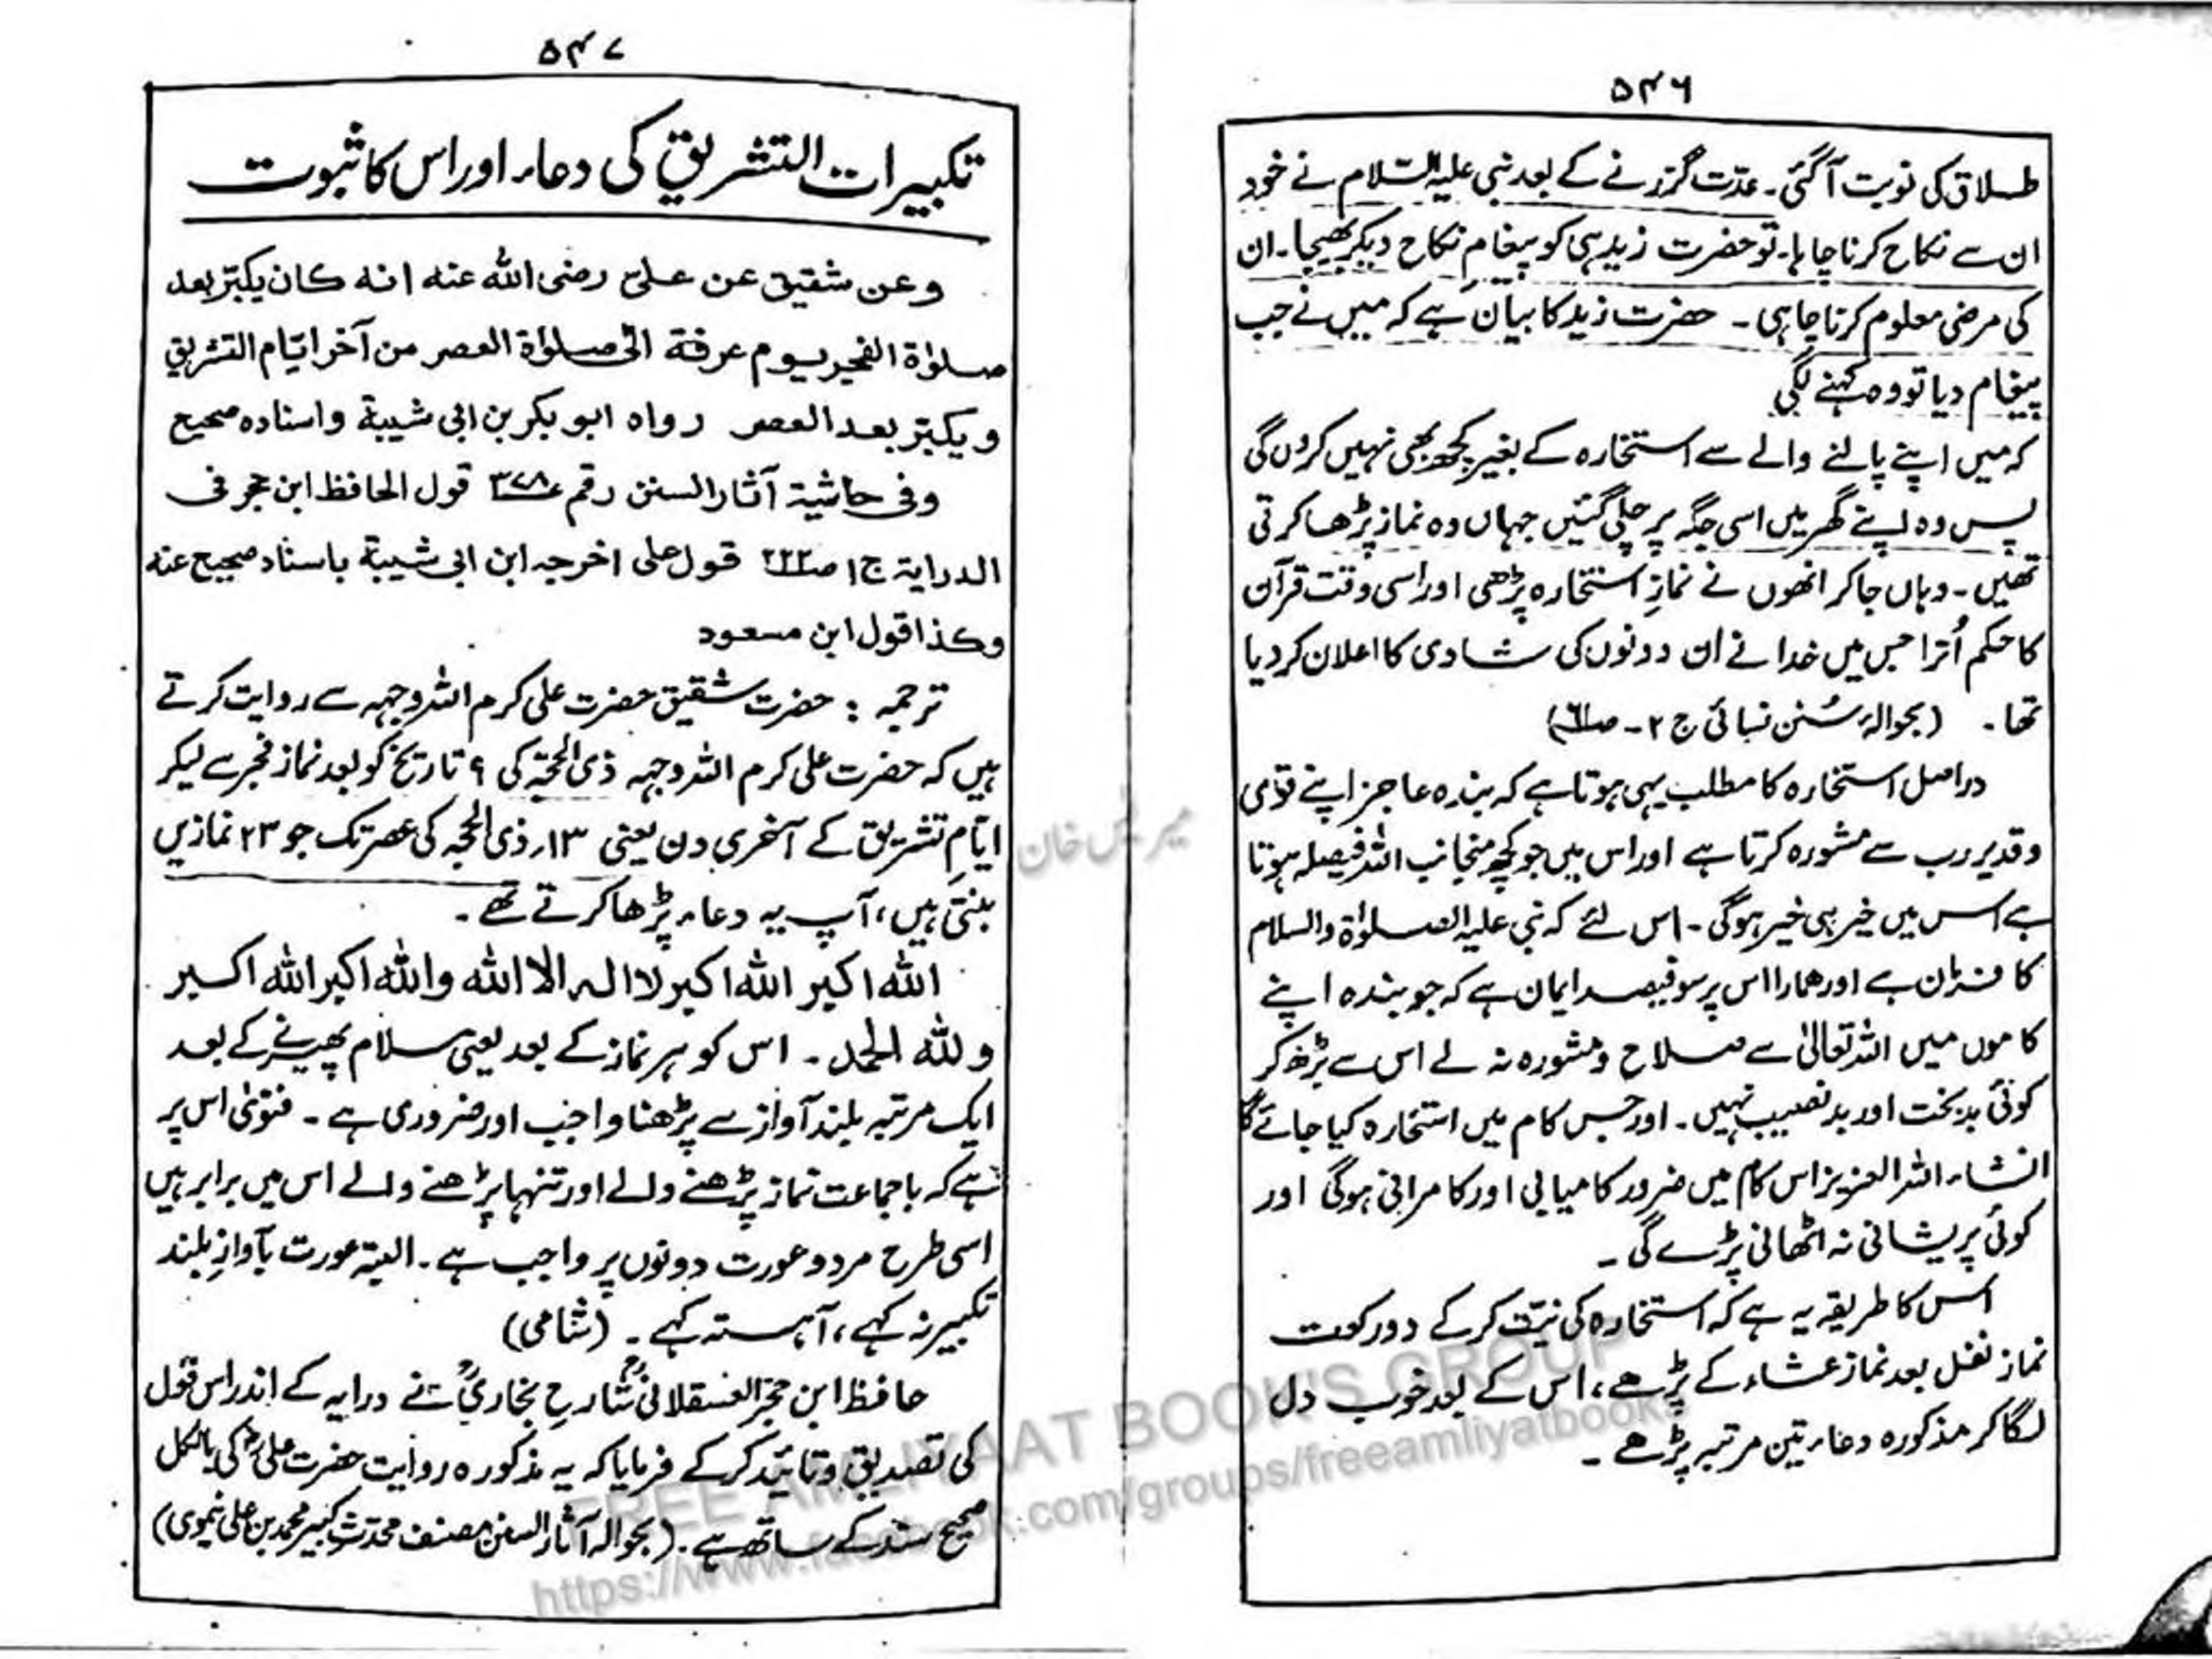 ۵۴۶
طلاق کی نوبت آگئی۔ عدّت گزرنے کے بعد نبی علیہ السّلام نے خود
ان سے نکاح کرنا چاہا۔ تو حضرت زید ہی کو پیغامِ نکاح دیکر بھیجا۔ ان
کی مرضی معلوم کرنا چاہی ۔ حضرت زید کا بیان ہے کہ میں نے جب
پیغام دیا تو وہ کہنے لگی
کہ میں اپنے پالنے والے سے استخارہ کے بغیر کچھ بھی نہیں کروں گی
پس وہ اپنے گھر میں اسی جگہ پر چلی گئیں جہاں وہ نماز پڑھا کرتی
تھیں ۔ وہاں جاکر انھوں نے نمازِ استخارہ پڑھی اور اسی وقت قرآن
کا حکم اُترا جس میں خدا نے ان دونوں کی شادی کا اعلان کر دیا
تھا۔ (بحوالہ سُنن نسائی ج ۲ ـ صـ)
دراصل استخارہ کا مطلب یہی ہوتا ہے کہ بندہ عاجز اپنے قوی
و قدیر رب سے مشورہ کرتا ہے اور اس میں جو کچھ منجانب اللہ فیصلہ ہوتا
ہے اس میں خیر ہی خیر ہوگی ۔ اس لئے کہ نبی علیہ الصلوٰۃ والسلام
کا فرمان ہے اور ھمارا اس پر سو فیصد ایمان ہے کہ جو بندہ اپنے
کاموں میں اللہ تعالیٰ سے صلاح و مشورہ نہ لے اس سے بڑھ کر
کوئی بدبخت اور بدنصیب نہیں ۔ اور جس کام میں استخارہ کیا جائے گا
انشاء اللہ العزیز اس کام میں ضرور کامیابی اور کامرانی ہوگی اور
کوئی پریشانی نہ اٹھانی پڑے گی ۔
اس کا طریقہ یہ ہے کہ استخارہ کی نیّت کر کے دو رکعت
نماز نفل بعد نماز عشاء کے پڑھے، اس کے بعد خوب دل
لگا کر مذکورہ دعاء تین مرتبہ پڑھے ۔
۵۴۷
تکبیرات التشریق کی دعاء اور اس کا ثبوت
وعن شقیق عن علیّ رضی اللّٰہ عنہ انہ کان یکبّر بعد
صلوٰۃ الفجر یوم عرفۃ الیٰ صلوٰۃ العصر من آخر ایّام التشریق
ویکبّر بعد العصر رواہ ابو بکر بن ابی شیبۃ واسنادہ صحیح
وفی حاشیۃ آثار السنن رقم ۳۷۸ قول الحافظ ابن حجر فی
الدرایۃ ج۱ صـ۲۲۲ قول علی اخرجہ ابن ابی شیبۃ باسناد صحیح عنہ
وکذا قول ابن مسعود
ترجمہ : حضرت شقیق حضرت علی کرم اللہ وجہہ سے روایت کرتے
ہیں کہ حضرت علی کرم اللہ وجہہ ذی الحجّہ کی ۹ تاریخ کو بعد نماز فجر سے لیکر
ایّامِ تشریق کے آخری دن یعنی ۱۳؍ ذی الحجہ کی عصر تک جو ۲۳ نمازیں
بنتی ہیں، آپ یہ دعاء پڑھا کرتے تھے ۔
اللّٰہ اکبر اللّٰہ اکبر لا الہ الا اللّٰہ واللّٰہ اکبر اللّٰہ اکبر
وللّٰہ الحمد ۔ اس کو ہر نماز کے بعد یعنی سلام پھیرنے کے بعد
ایک مرتبہ بلند آواز سے پڑھنا واجب اور ضروری ہے ۔ فتویٰ اس پر
ہے کہ باجماعت نماز پڑھنے والے اور تنہا پڑھنے والے اس میں برابر ہیں
اسی طرح مرد و عورت دونوں پر واجب ہے ۔ البتہ عورت بآوازِ بلند
تکبیر نہ کہے، آہستہ کہے ۔ (شامی)
حافظ ابن حجر العسقلانیؒ شارحِ بخاریؒ نے درایہ کے اندر اس قول
کی تصدیق و تائید کر کے فرمایا کہ یہ مذکورہ روایت حضرت علیؓ کی بالکل
صحیح سند کے ساتھ ہے ۔ (بحوالہ آثار السنن مصنف محدث کبیر محمد بن علی نیموی)
FREE AMLIYAAT BOOK'S GROUP
https://www.facebook.com/groups/freeamliyatbooks